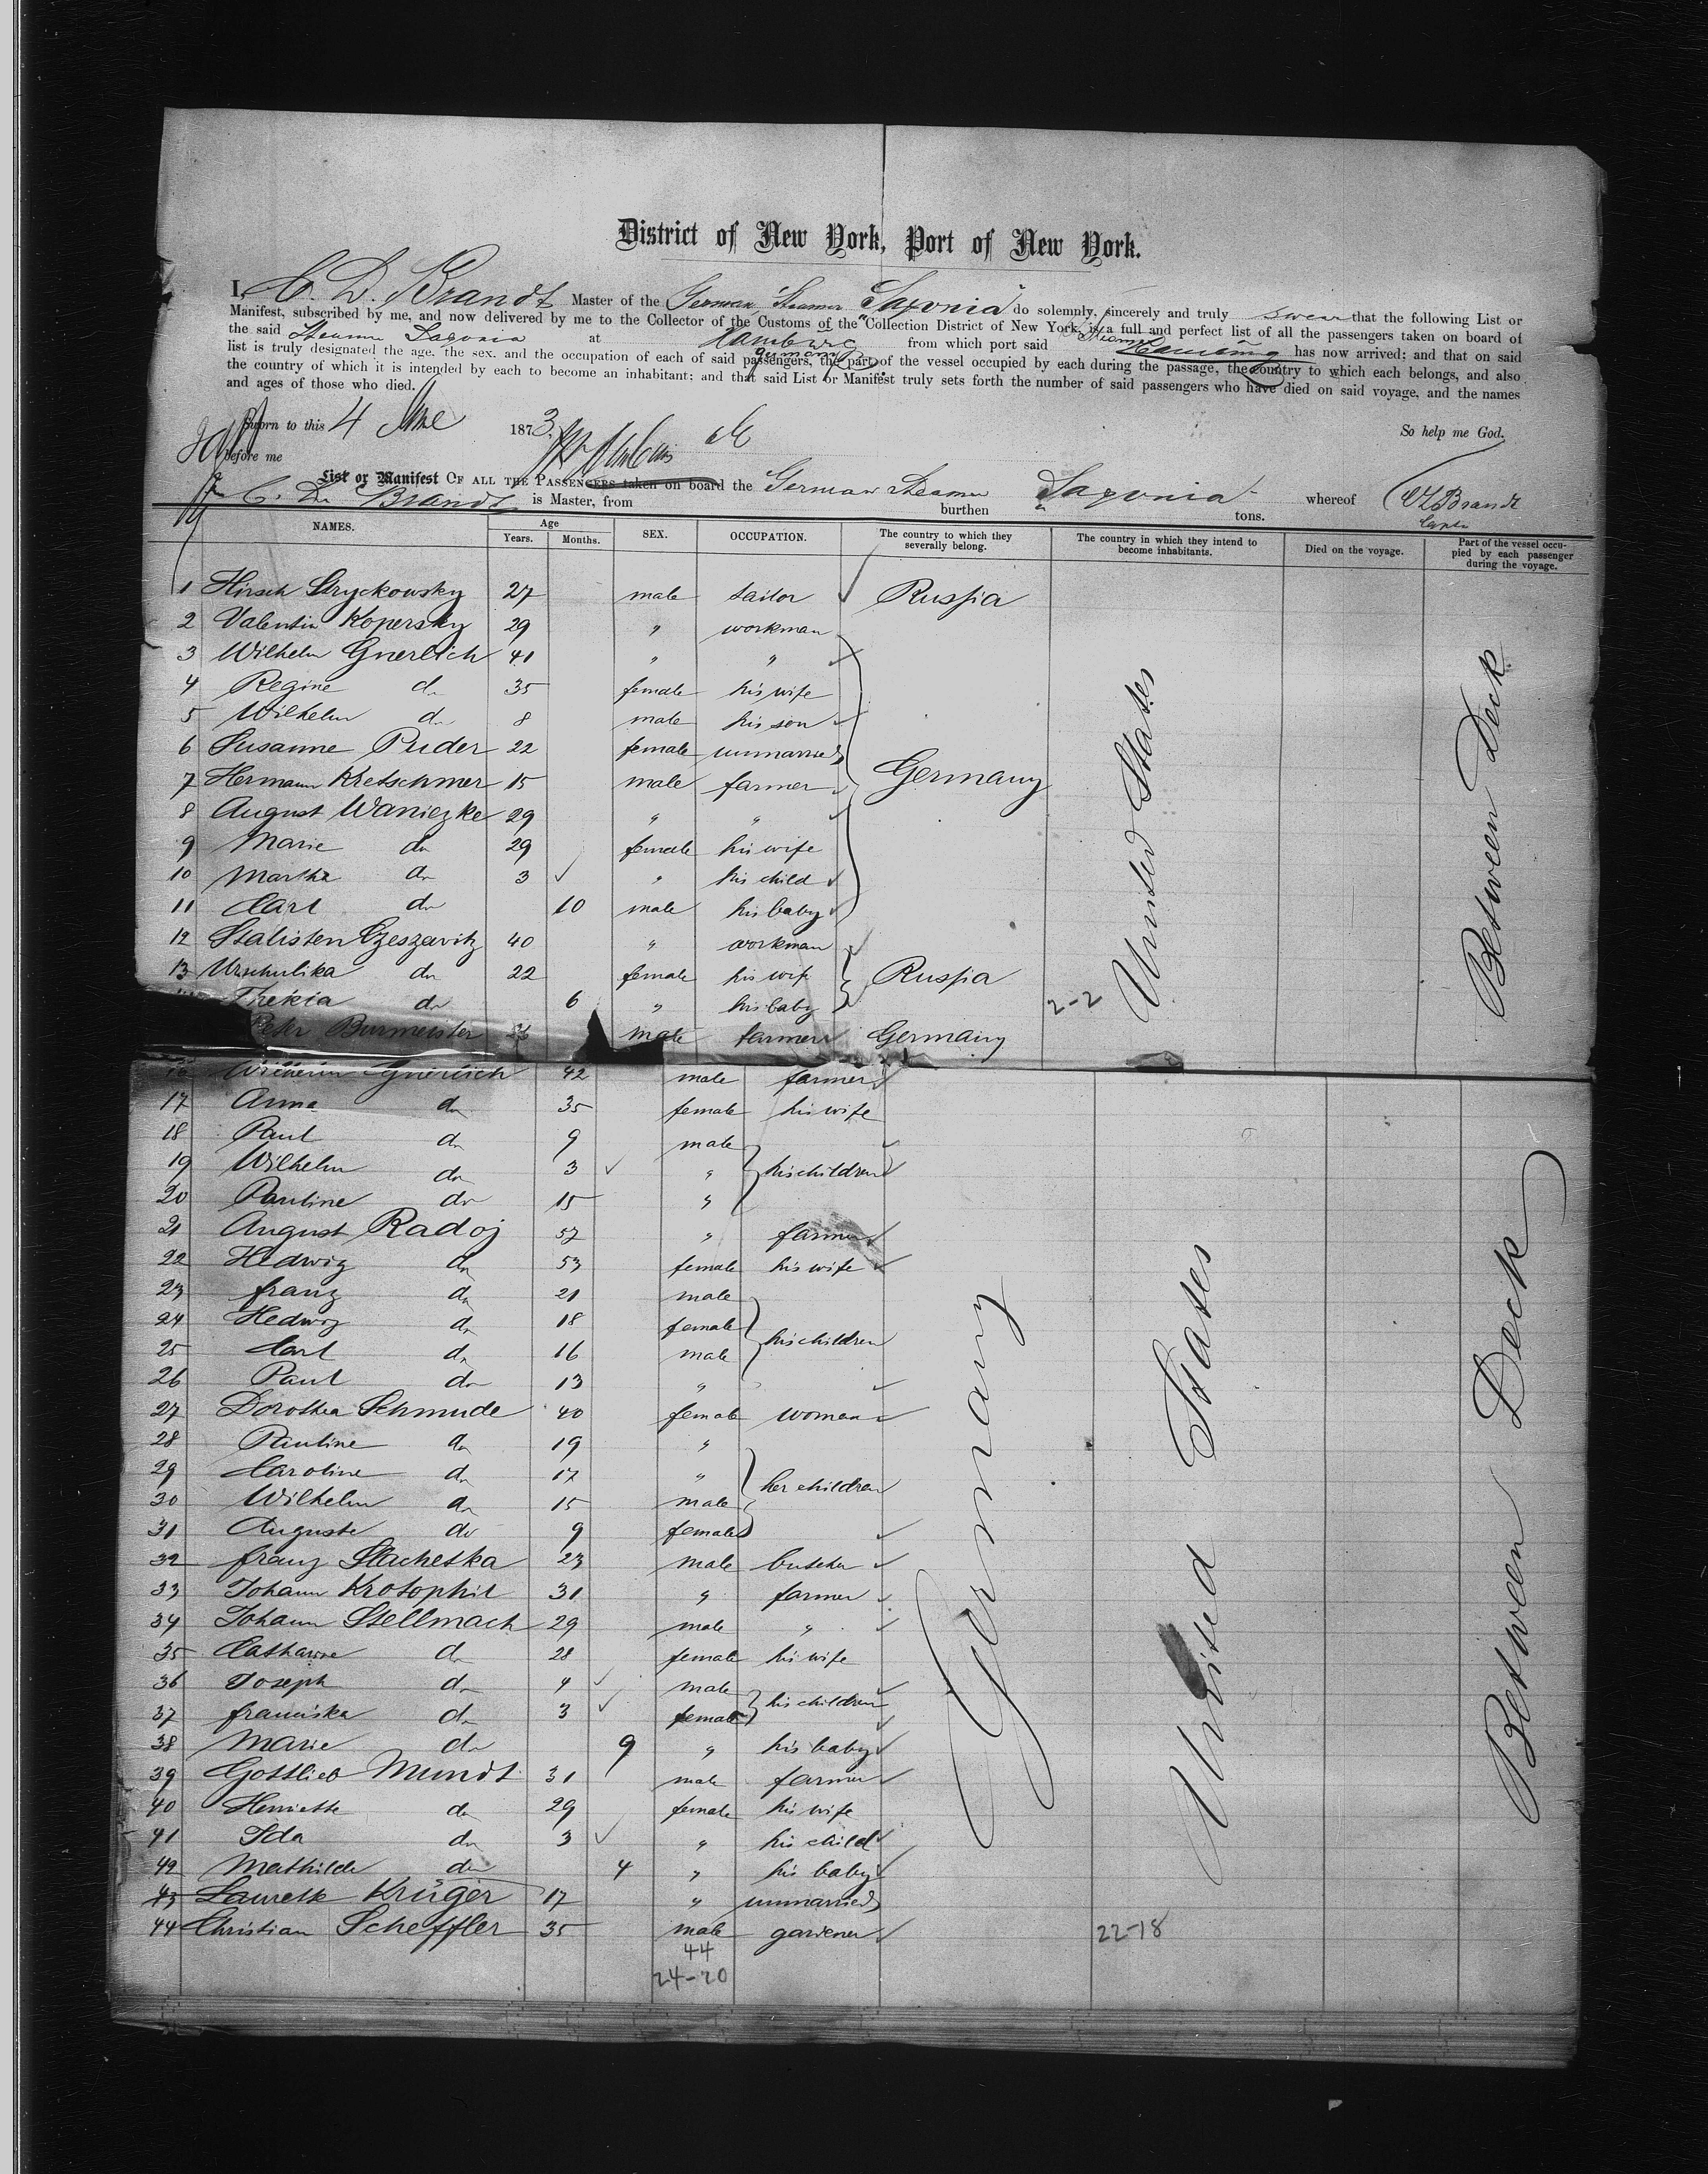 District of New York, Port of New York.
I, C. D. Brandt Master of the German Steamer "Saxonia" do solemnly, sincerely and truly swear that the following List or
Manifest, subscribed by me, and now delivered by me to the Collector of the Customs of the Collection District of New York, is a full and perfect list of all the passengers taken on board of
the said Steamer Saxonia at Hamburg from which port said Steamer has now arrived; and that on said
list is truly designated the age, the sex, and the occupation of each of said passengers, the part of the vessel occupied by each during the passage, the country to which each belongs, and also
the country of which it is intended by each to become an inhabitant; and that said List or Manifest truly sets forth the number of said passengers who have died on said voyage, and the names
and ages of those who died.
Sworn to this 4 June 1873,
So help me God.
Before me
List or Manifest OF ALL THE PASSENGERS taken on board the German Steamer Saxonia whereof
C. D. Brandt is Master, from burthen tons.
Brandt
NAMES. Age Years. Months. SEX. OCCUPATION. The country to which they severally belong. The country in which they intend to become inhabitants. Died on the voyage. Part of the vessel occupied by each passenger during the voyage.
1 Hirsch Stryckowsky 27 male tailor Russia
2 Valentin Kopersky 29 " workman
3 Wilhelm Gnerlich 41 " "
4 Regine do 35 female his wife
5 Wilhelm do 8 male his son
6 Susanne Puder 22 female unmarried
7 Hermann Kretschmer 15 male farmer Germany
8 August Waniezke 29 " "
9 Marie do 29 female his wife
10 Martha do 3 " his child
11 Carl do 10 male his baby
12 Stalisten Czeszavitz 40 " workman
13 Urschulika do 22 female his wife Russia
Thekia do 6 " his baby 2-2
Peter Burmeister 26 male farmer Germany
United States
Between Deck
16 Wilhelm Gnerlich 42 male farmer
17 Anna do 35 female his wife
18 Paul do 9 male
19 Wilhelm do 3 " his children
20 Pauline do 15 "
21 August Radoj 57 " farmer
22 Hedwig do 53 female his wife
23 Franz do 21 male
24 Hedwig do 18 female his children
25 Carl do 16 male
26 Paul do 13 "
27 Dorothea Schmude 40 female woman
28 Pauline do 19 "
29 Caroline do 17 " her children
30 Wilhelm do 15 male
31 Auguste do 9 female
32 Franz Stacheska 23 male butcher
33 Johann Krotophil 31 " farmer
34 Johann Stellmach 29 male "
35 Catharine do 28 female his wife
36 Joseph do 4 male his children
37 Franciska do 3 female
38 Marie do 9 " his baby
39 Gottlieb Mundt 31 male farmer
40 Henriette do 29 female his wife
41 Ida do 3 " his child
42 Mathilde do 4 " his baby
43 Laurette Krüger 17 " unmarried
44 Christian Scheffler 35 male gardener 22-18
44
24-20
Germany
United States
Between Deck